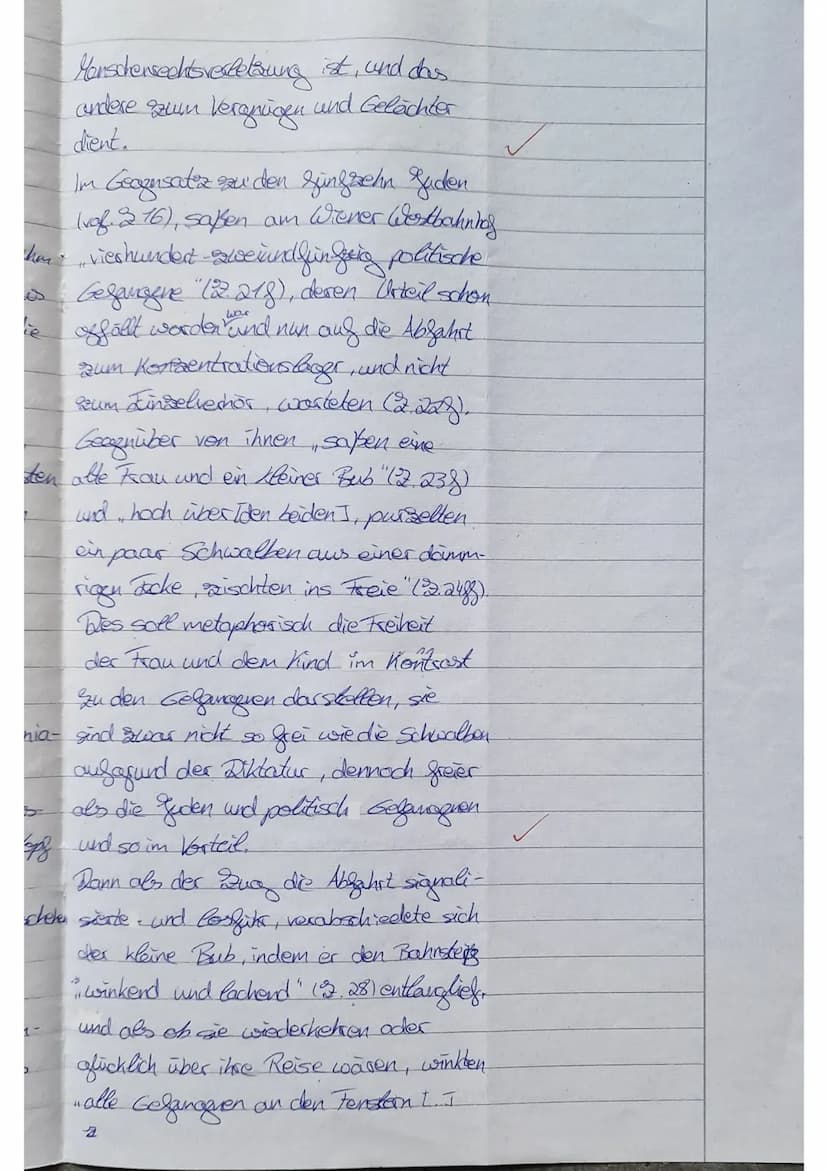 Menschenrechtsverletzung ist, und das
andere zum Vergnügen und Gelächter
dient.
Im Gegensatz zu den fünfzehn Juden
(vgl. Z 16), saßen am Wiener Westbahnhof
„vierhundert-zweiundfünfzig politische
Gefangene" (Z. 21f), deren Urteil schon
gefällt worden war und nun auf die Abfahrt
zum Konzentrationslager, und nicht
zum Einzelverhör, warteten (Z. 22f).
Gegenüber von ihnen „saßen eine
sten alte Frau und ein kleiner Bub" (Z. 23f)
und „hoch über [den beiden], purzelten
ein paar Schwalben aus einer dämm-
rigen Ecke, zischten ins Freie" (Z. 24ff).
Dies soll metaphorisch die Freiheit
der Frau und dem Kind im Kontrast
zu den Gefangenen darstellen, sie
nia- sind zwar nicht so frei wie die Schwalben
aufgrund der Diktatur, dennoch freier
als die Juden und politisch Gefangenen
und so im Vorteil.
Dann als der Zug die Abfahrt signali-
sierte und losfuhr, verabschiedete sich
der kleine Bub, indem er den Bahnsteig
„winkend und lachend" (Z. 28) entlanglief,
und als ob sie wiederkehren oder
glücklich über ihre Reise wären, winkten
„alle Gefangenen an den Fenstern [..]